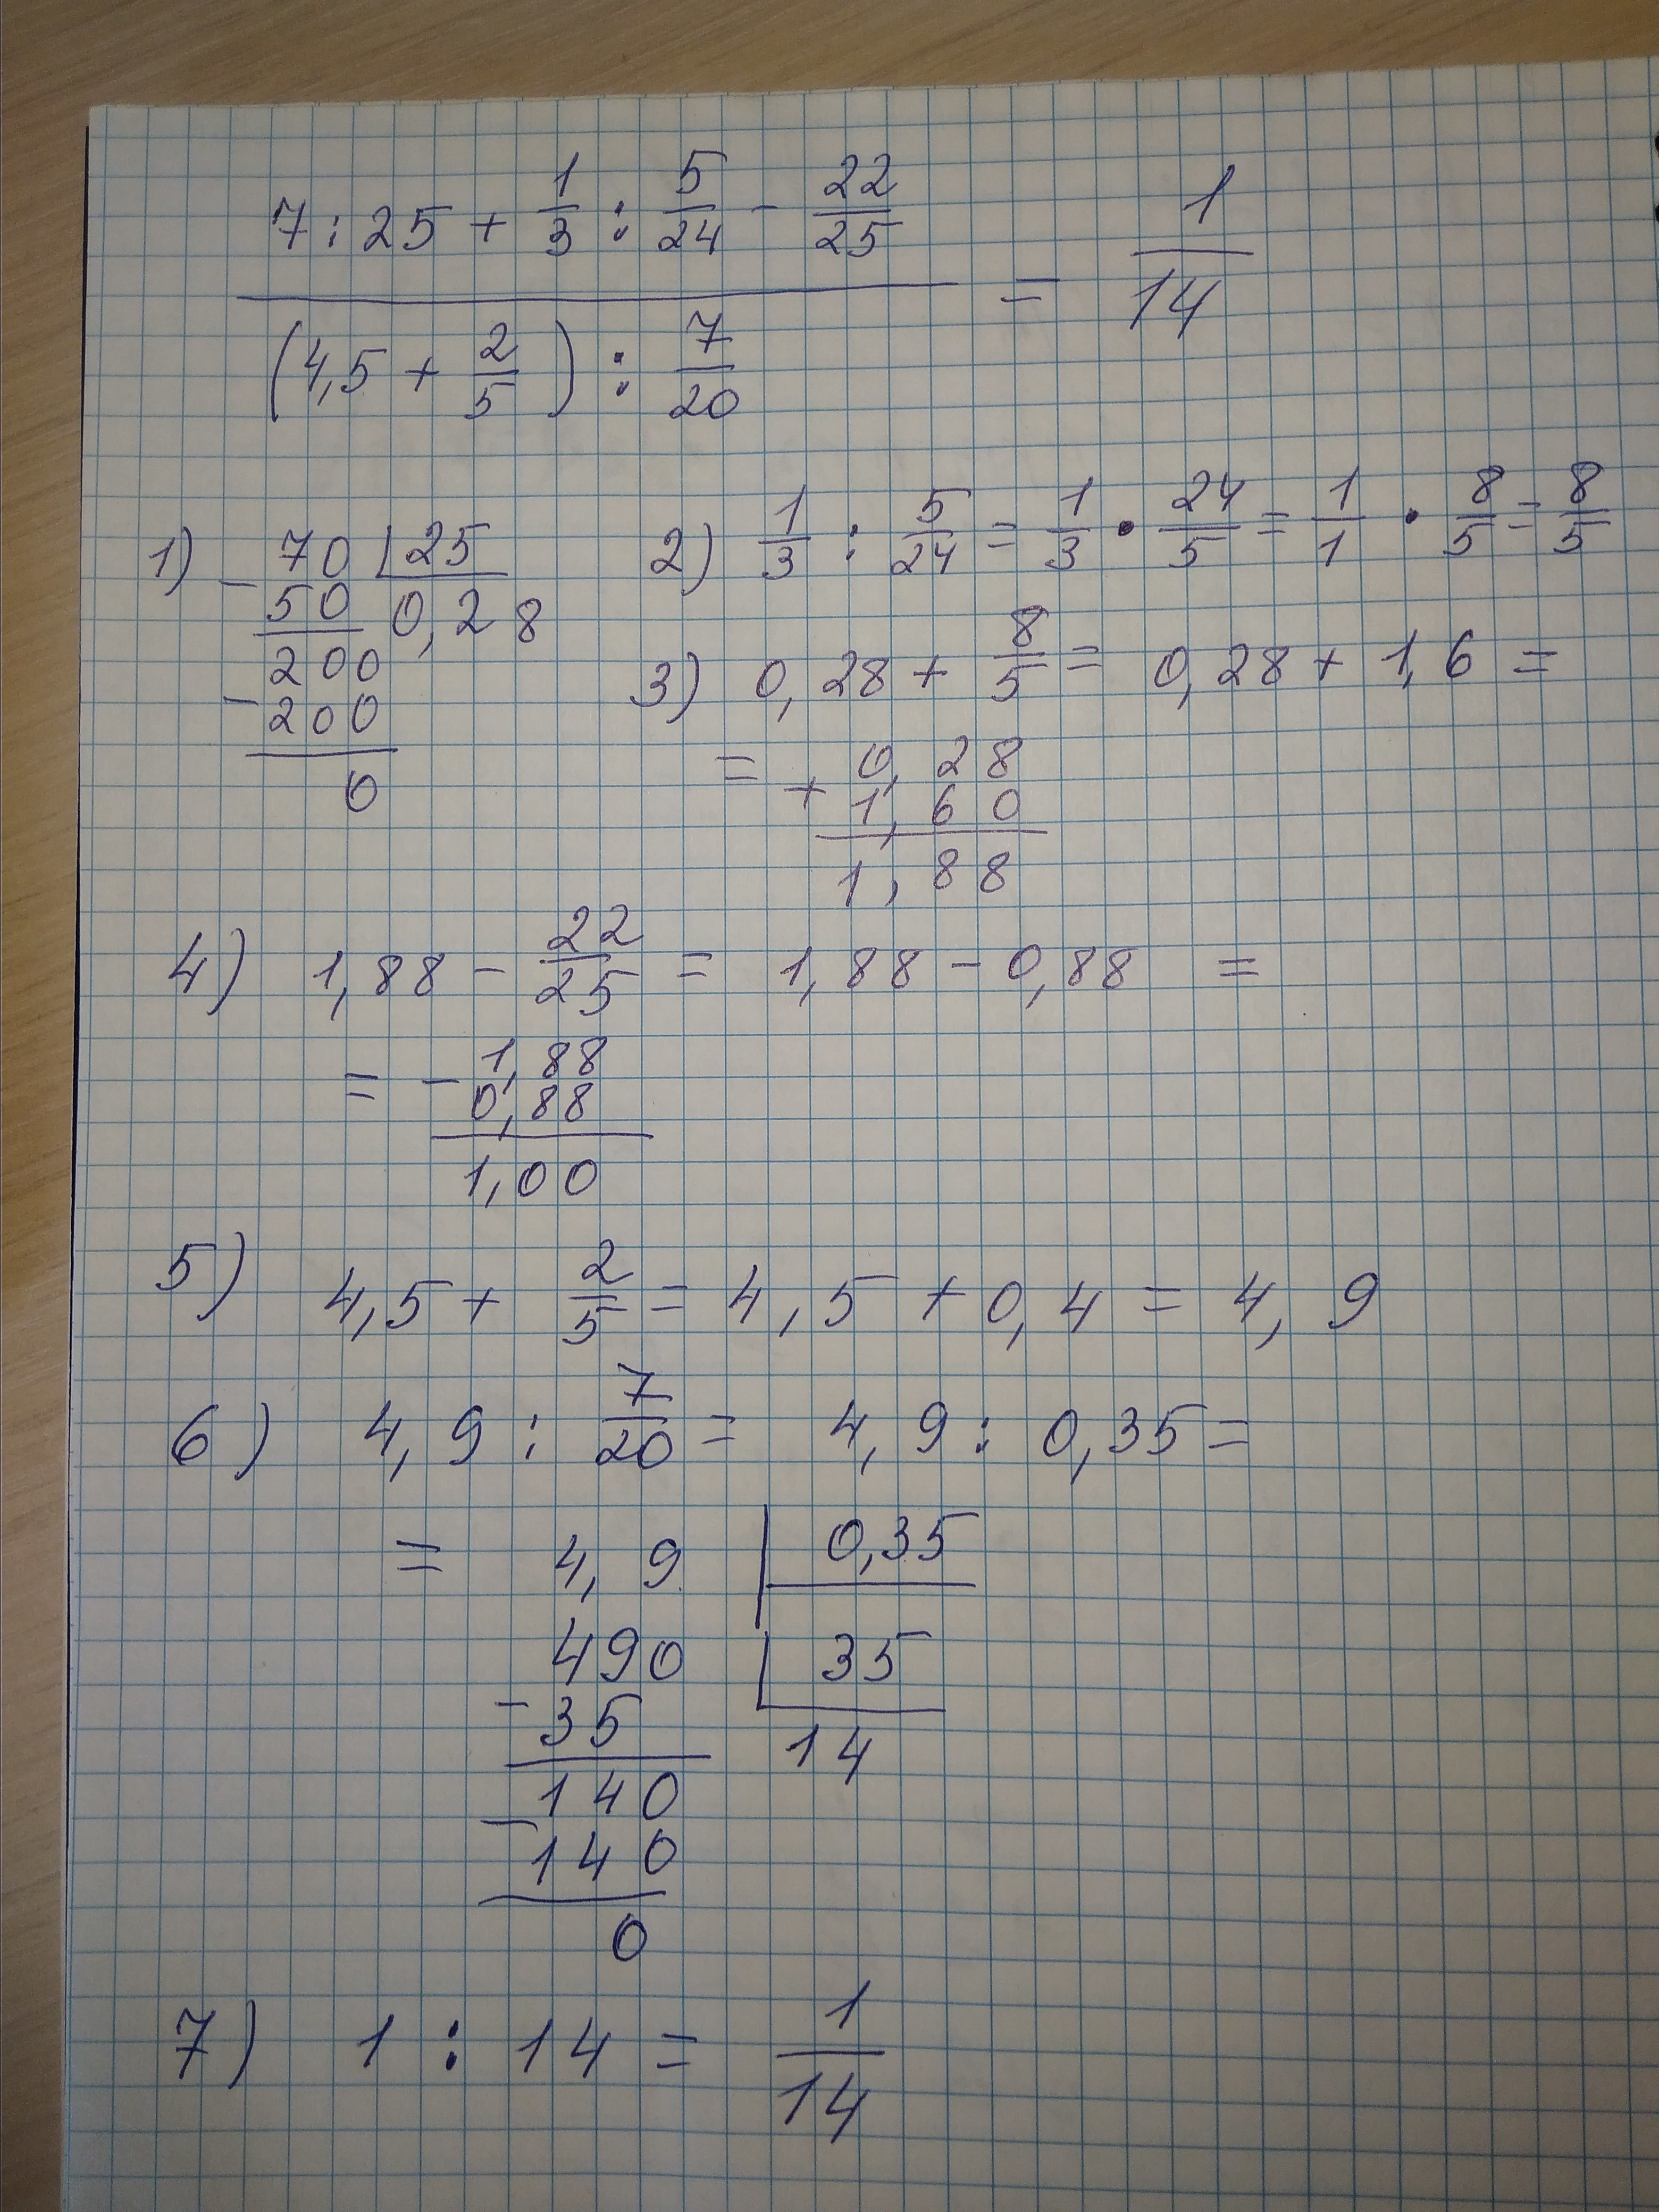 7 : 25 + 1/3 : 5/24 - 22/25
(4,5 + 2/5) : 7/20
= 1/14
1) 70 | 25
- 50 0,28
200
- 200
0
2) 1/3 : 5/24 = 1/3 · 24/5 = 1/1 · 8/5 = 8/5
3) 0,28 + 8/5 = 0,28 + 1,6 =
= + 0,28
1,60
1,88
4) 1,88 - 22/25 = 1,88 - 0,88 =
= - 1,88
0,88
1,00
5) 4,5 + 2/5 = 4,5 + 0,4 = 4,9
6) 4,9 : 7/20 = 4,9 : 0,35 =
= 4,9 | 0,35
490 | 35
- 35 14
140
- 140
0
7) 1 : 14 = 1/14